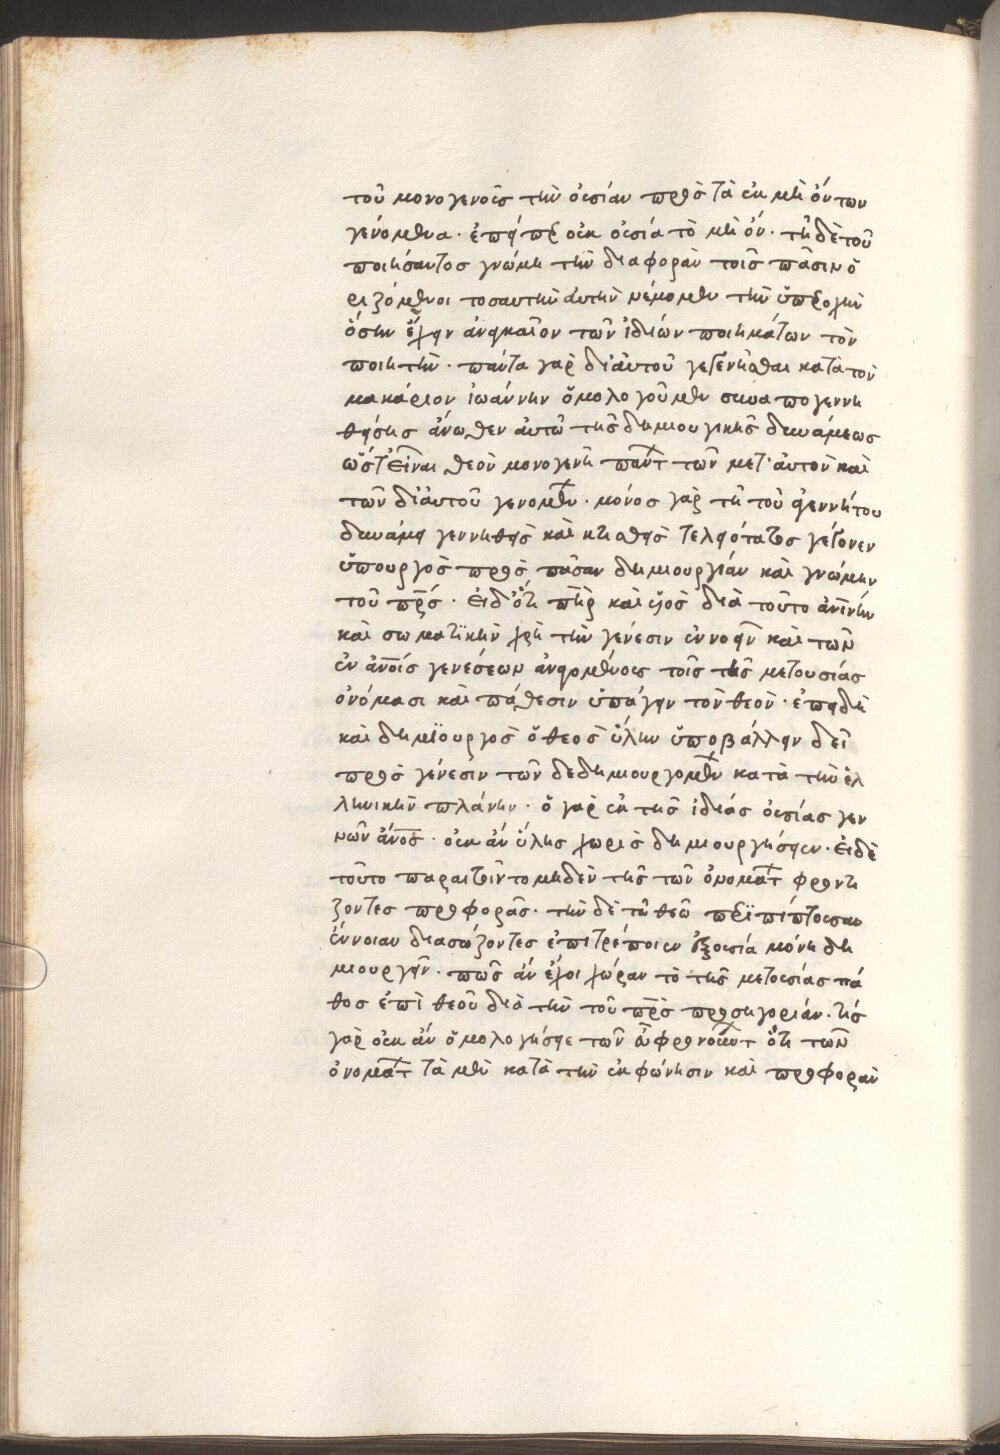 τοῦ μονογενοῦς τὴν οὐσίαν πρὸς τὰ ἐκ μὴ ὄντων
γενόμενα· ἐπείπερ οὐκ οὐσία τὸ μὴ ὄν· τῇ δὲ τοῦ
ποιήσαντος γνώμη τὴν διαφορὰν τοῖς πᾶσιν ὁ
ριζόμενοι τοσαυτὴν αὐτὴν νέμομεν τὴν ὑπεροχὴν
ὅσην ἔχειν ἀναγκαῖον τῶν ἰδίων ποιημάτων τὸν
ποιητήν· πάντα γὰρ δι' αὐτοῦ γεγενῆσθαι κατὰ τὸν
μακάριον ἰωάννην ὁμολογοῦμεν συναπογεννη
θείσης ἄνωθεν αὐτῶ τῆς δημιουργικῆς δυνάμεως
ὥστ' εἶναι θεὸν μονογενῆ πάντ τῶν μετ' αὐτὸν καὶ
τῶν δι' αὐτοῦ γενομέν· μόνος γὰρ τῇ τοῦ ἀγεννήτου
δυνάμει γεννηθεὶς καὶ κτισθεὶς τελειότατος γέγονεν
ὑπουργὸς πρὸς πᾶσαν δημιουργίαν καὶ γνώμην
τοῦ πρς· εἰ δ' ὅτι πὴρ καὶ υἱὸς διὰ τοῦτο ἀνίνην
καὶ σωματϊκὴν χρὴ τὴν γένεσιν ἐννοεῖν καὶ τῶν
ἐν ἀνοις γενέσεων ἀναγομένους τοῖς τῆς μετουσίας
ὀνόμασι καὶ πάθεσιν ὑπάγειν τὸν θεόν· ἐπειδὴ
καὶ δημϊουργὸς ὁ θεος ὕλην ὑποβάλλειν δεῖ
πρὸς γένεσιν τῶν δεδημιουργομέν κατὰ τὴν ἑλ
ληνικὴν πλάνην· ὁ γὰρ ἐκ τῆς ἰδίας οὐσίας γεν
νῶν ἄνος· οὐκ ἂν ὕλης χωρὶς δημιουργήσειεν· εἰ δὲ
τοῦτο παραιτοῖντο μηδὲν τῆς τῶν ὀνομάτ φροντί
ζοντες προφορᾶς· τὴν δὲ τῶ θεῶ περϊπίπτουσαν
ἔννοιαν διασώζοντες ἐπιτρέποιεν ἐξουσία μόνη δη
μιουργεῖν· πῶς ἂν ἔχοι χώραν τὸ τῆς μετουσίας πά
θος ἐπὶ θεοῦ διὰ τὴν τοῦ πρς προσηγορίαν· τίς
γὰρ οὐκ ἂν ὁμολογήσειε τῶν εὖ φρονούντ ὅτι τῶν
ὀνομάτ τὰ μὲν κατὰ τὴν ἐκφώνησιν καὶ προφορὰν